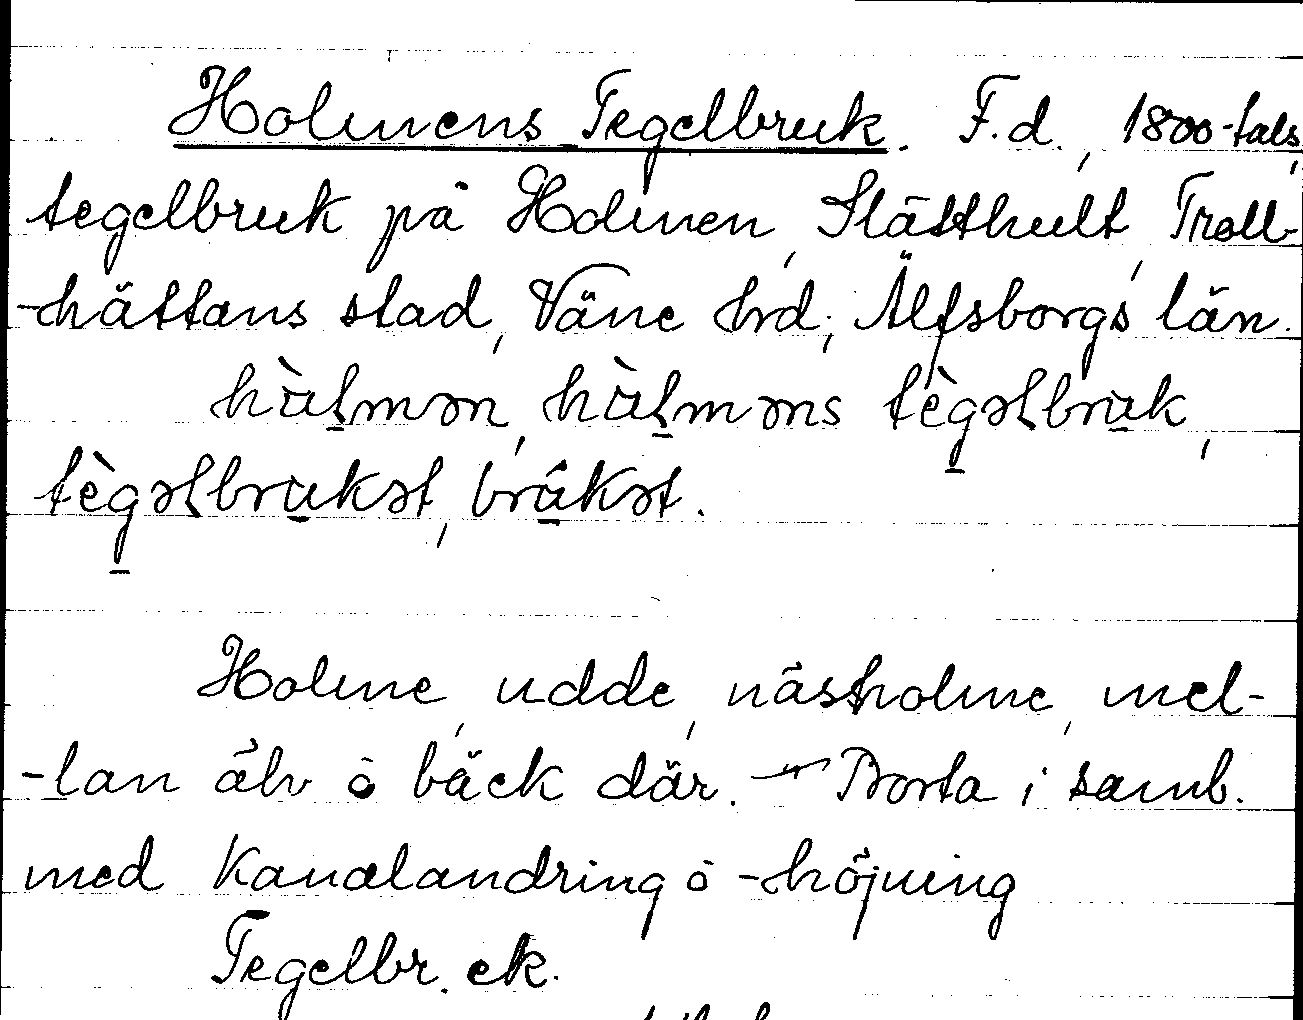 Holmens Tegelbruk. F.d., 1800-tals,
tegelbruk på Holmen, Slätthult, Troll-
-hättans stad, Väne hrd, Älfsborgs län.
hùɭmən, hùɭməns tègəɭbruk,
tègəɭbrukət, brûkət.
Holme, udde, näsholme, mel-
-lan älv ò bäck där. – Borta i samb.
med Kanalandring ò -höjning
Tegelbr. ek.